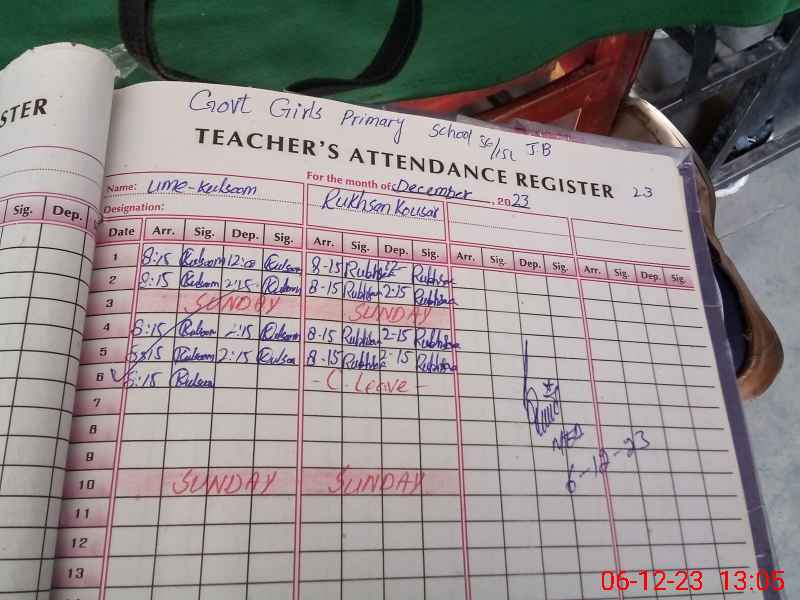 STER
Govt Girls Primary School 56/15L J.B
TEACHER'S ATTENDANCE REGISTER 23
For the month of December, 2023
Name: Ume-Kulsoom Rukhsan Kousar
Designation:
Sig. Dep. Sig. Date Arr. Sig. Dep. Sig. Arr. Sig. Dep. Sig. Arr. Sig. Dep. Sig. Arr. Sig. Dep. Sig.
1 8:15 Kulsoom 12:00 Kulsoom 8-15 Rukhsa Rukhsana
2 8:15 Kulsoom 2:15 Kulsoom 8-15 Rukhsa 2-15 Rukhsana
3 SUNDAY SUNDAY
4 8:15 Kulsoom 2:15 Kulsoom 8-15 Rukhsa 2-15 Rukhsana
5 8:15 Kulsoom 2:15 Kulsoom 8-15 Rukhsa 2-15 Rukhsana
6 8:15 Kulsoom - C. Leave -
7
8
9
6-12-23
10 SUNDAY SUNDAY
11
12
13
06-12-23 13:05